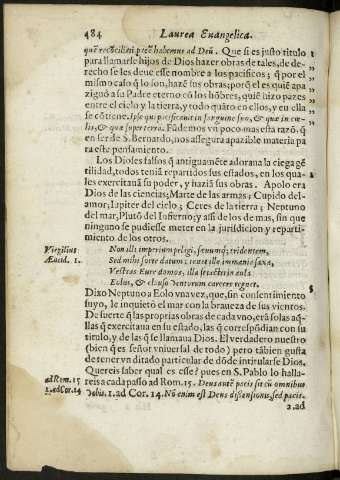 484 Laurea Euangelica.
quē recōciliati pacē habemus ad Deū. Que si es justo titulo
para llamarse hijos de Dios hazer obras de tales, de de-
recho se les deue esse nombre a los pacificos; q̄ por el
mismo caso q̄ lo son, hazē sus obras; porq̄ el es quiē apa
ziguó a su Padre eterno cō los hōbres, quiē hizo pazes
entre el cielo y la tierra, y todo quāto en ellos, y en ella
se cōtiene. Ipse qui pacificauit in sanguine suo, & quæ in cœ-
lis, & quæ super terrā. Fūdemos vn poco mas esta razō. q̄
en ser de S. Bernardo, nos assegura apazible materia pa
ra este pensamiento.
Los Dioses falsos q̄ antiguamēte adoraua la ciega gē
tilidad, todos teniā repartidos sus estados, en los qua-
les exercitauā su poder, y haziā sus obras. Apolo era
Dios de las ciencias; Marte de las armas; Cupido del
amor; Iupiter del cielo; Ceres de la tierra; Neptuno
del mar, Plutō del Infierno; y assi de los de mas, sin que
ninguno se pudiesse meter en la juridicion y reparti-
miento de los otros.
Virgilius Non illi imperium pelagi, sæuumq; tridentem,
Æneid. 1. Sed mihi sorte datum: tenet ille immania saxa,
Vestras Eure domos, illa se iactet in aula
Eolus, & clauso ventorum carcere regnet.
Dixo Neptuno a Eolo vna vez, que, sin consentimiento
suyo, le inquietō el mar con la braueza de sus vientos.
De suerte q̄ las proprias obras de cada vno, erā solas aq̄-
llas q̄ exercitaua en su estado, las q̄ correspōdian con su
titulo, y de las q̄ se llamaua Dios. El verdadero nuestro
(bien q̄ es señor vniuersal de todo) pero tābien gusta
de tener vn ditado particular de dōde intitularse Dios.
Quereis saber qual es esse? pues en S. Pablo lo halla-
ad Rom. 15 reis a cada passo ad Rom. 15. Deus autē pacis sit cū omnibus
1. ad Cor. 14 vobis. 1. ad Cor. 14. Nō enim est Deus dissensionis, sed pacis.
2. ad